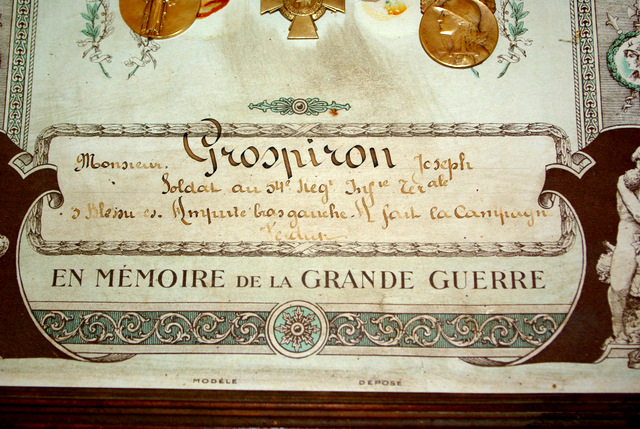 Monsieur. Grospiron Joseph
Soldat au 54e Regt Infie Terale
3 Blessures. Amputé bras gauche. A fait la Campagne
Verdun
EN MÉMOIRE DE LA GRANDE GUERRE
MODÈLE DÉPOSÉ